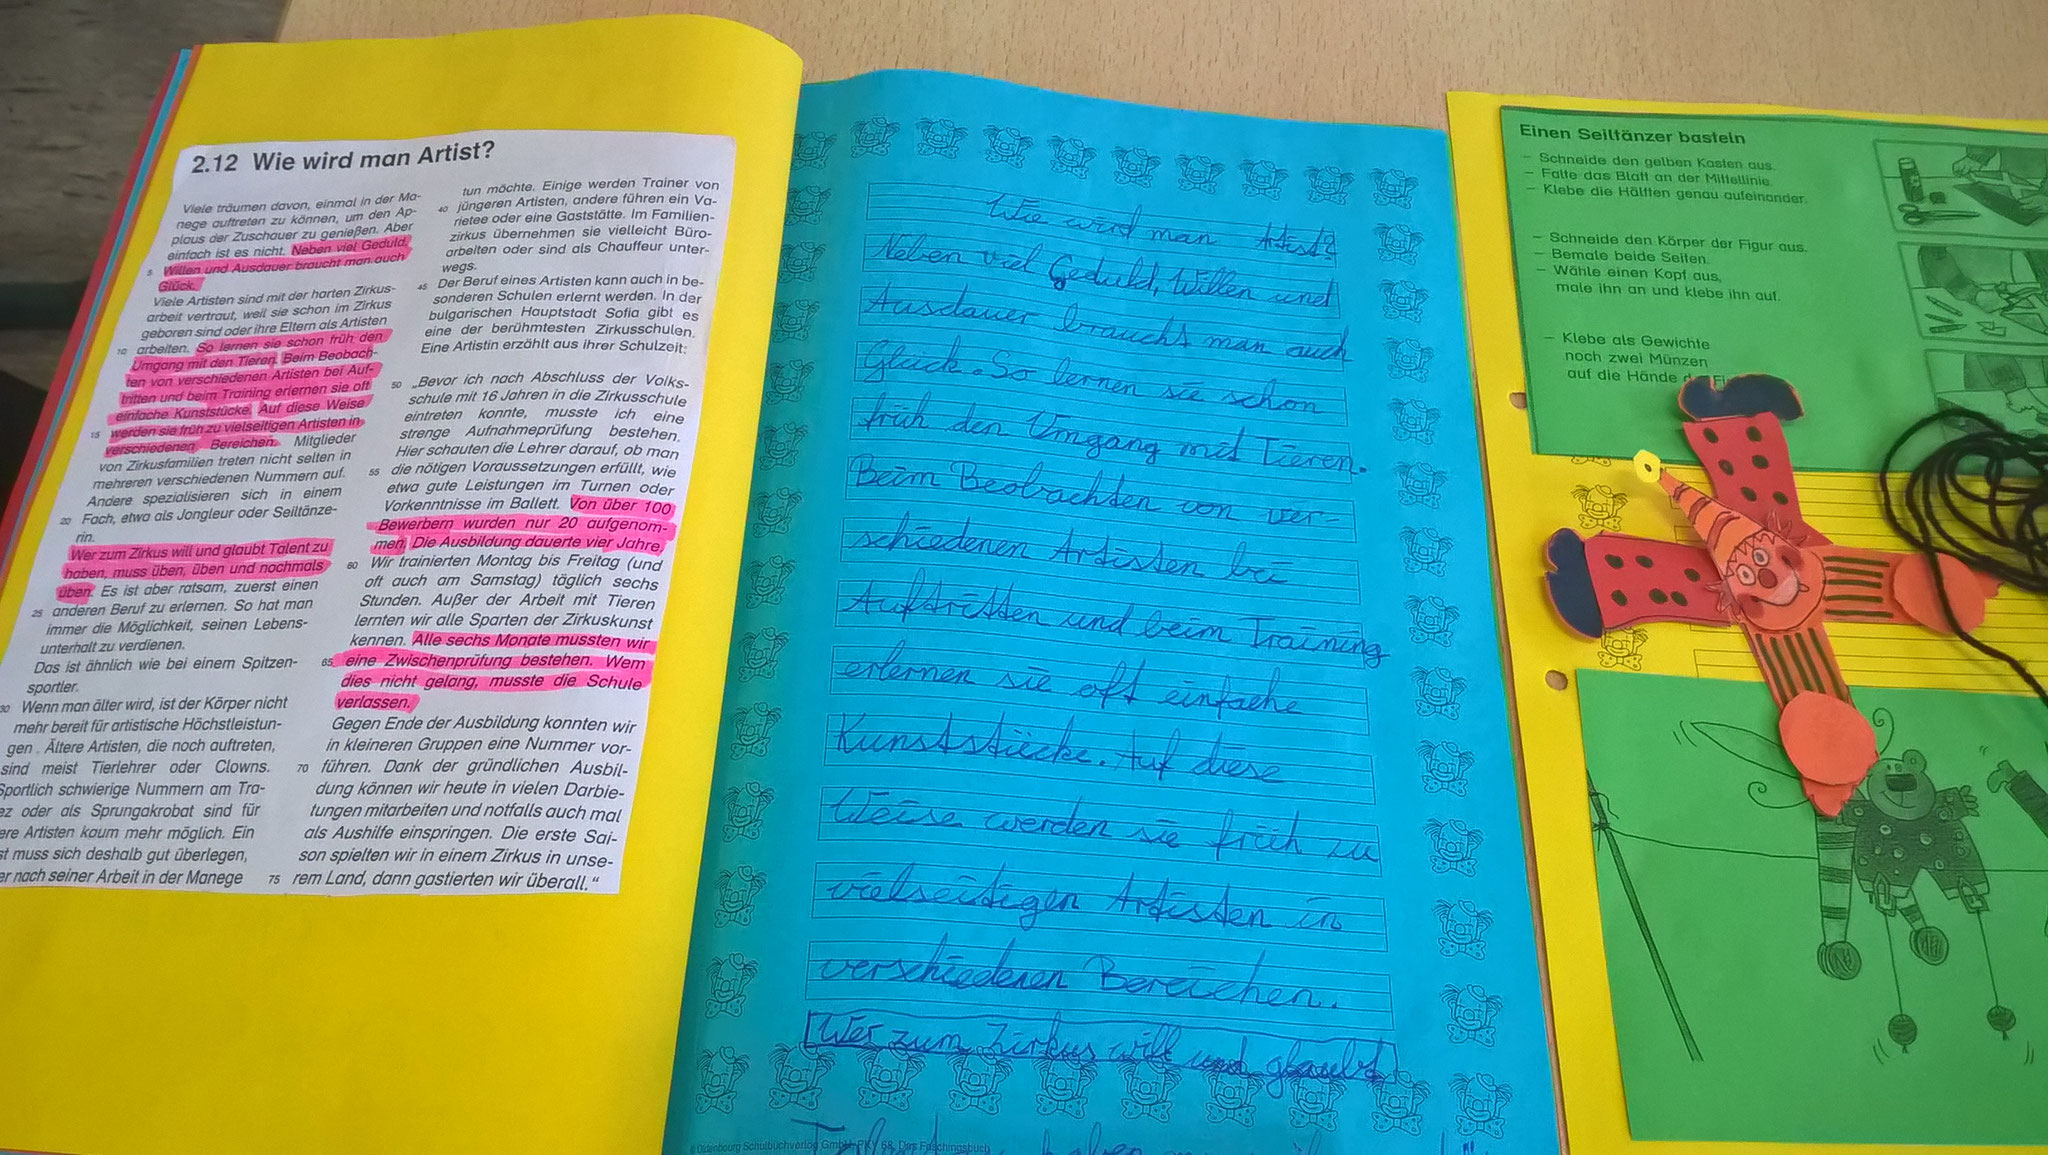 2.12 Wie wird man Artist?
Viele träumen davon, einmal in der Ma-
nege auftreten zu können, um den Ap-
plaus der Zuschauer zu genießen. Aber
einfach ist es nicht. Neben viel Geduld,
5 Willen und Ausdauer braucht man auch
Glück.
Viele Artisten sind mit der harten Zirkus-
arbeit vertraut, weil sie schon im Zirkus
geboren sind oder ihre Eltern als Artisten
10 arbeiten. So lernen sie schon früh den
Umgang mit den Tieren. Beim Beobach-
ten von verschiedenen Artisten bei Auf-
tritten und beim Training erlernen sie oft
einfache Kunststücke. Auf diese Weise
15 werden sie früh zu vielseitigen Artisten in
verschiedenen Bereichen. Mitglieder
von Zirkusfamilien treten nicht selten in
mehreren verschiedenen Nummern auf.
Andere spezialisieren sich in einem
20 Fach, etwa als Jongleur oder Seiltänze-
rin.
Wer zum Zirkus will und glaubt Talent zu
haben, muss üben, üben und nochmals
üben. Es ist aber ratsam, zuerst einen
25 anderen Beruf zu erlernen. So hat man
immer die Möglichkeit, seinen Lebens-
unterhalt zu verdienen.
Das ist ähnlich wie bei einem Spitzen-
sportler.
30 Wenn man älter wird, ist der Körper nicht
mehr bereit für artistische Höchstleistun-
gen . Ältere Artisten, die noch auftreten,
sind meist Tierlehrer oder Clowns.
Sportlich schwierige Nummern am Tra-
ez oder als Sprungakrobat sind für
ere Artisten kaum mehr möglich. Ein
st muss sich deshalb gut überlegen,
er nach seiner Arbeit in der Manege
tun möchte. Einige werden Trainer von
40 jüngeren Artisten, andere führen ein Va-
rietee oder eine Gaststätte. Im Familien-
zirkus übernehmen sie vielleicht Büro-
arbeiten oder sind als Chauffeur unter-
wegs.
45 Der Beruf eines Artisten kann auch in be-
sonderen Schulen erlernt werden. In der
bulgarischen Hauptstadt Sofia gibt es
eine der berühmtesten Zirkusschulen.
Eine Artistin erzählt aus ihrer Schulzeit:
50 „Bevor ich nach Abschluss der Volks-
schule mit 16 Jahren in die Zirkusschule
eintreten konnte, musste ich eine
strenge Aufnahmeprüfung bestehen.
Hier schauten die Lehrer darauf, ob man
55 die nötigen Voraussetzungen erfüllt, wie
etwa gute Leistungen im Turnen oder
Vorkenntnisse im Ballett. Von über 100
Bewerbern wurden nur 20 aufgenom-
men. Die Ausbildung dauerte vier Jahre.
60 Wir trainierten Montag bis Freitag (und
oft auch am Samstag) täglich sechs
Stunden. Außer der Arbeit mit Tieren
lernten wir alle Sparten der Zirkuskunst
kennen. Alle sechs Monate mussten wir
65 eine Zwischenprüfung bestehen. Wem
dies nicht gelang, musste die Schule
verlassen.
Gegen Ende der Ausbildung konnten wir
in kleineren Gruppen eine Nummer vor-
70 führen. Dank der gründlichen Ausbil-
dung können wir heute in vielen Darbie-
tungen mitarbeiten und notfalls auch mal
als Aushilfe einspringen. Die erste Sai-
son spielten wir in einem Zirkus in unse-
75 rem Land, dann gastierten wir überall.“
Wie wird man Artist?
Neben viel Geduld, Willen und
Ausdauer brauchs man auch
Glück. So lernen sie schon
früh den Umgang mit Tieren.
Beim Beobachten von ver-
schiedenen Artisten bei
Auftritten und beim Training
erlernen sie oft einfache
Kunststücke. Auf diese
Weise werden sie früh zu
vielseitigen Artisten in
verschiedenen Bereichen.
Wer zum Zirkus will und glaubt
© Oldenbourg Schulbuchverlag GmbH, PKV 68, Das Faschingsbuch
Einen Seiltänzer basteln
– Schneide den gelben Kasten aus.
– Falte das Blatt an der Mittellinie.
– Klebe die Hälften genau aufeinander.
– Schneide den Körper der Figur aus.
– Bemale beide Seiten.
– Wähle einen Kopf aus,
male ihn an und klebe ihn auf.
– Klebe als Gewichte
noch zwei Münzen
auf die Hände